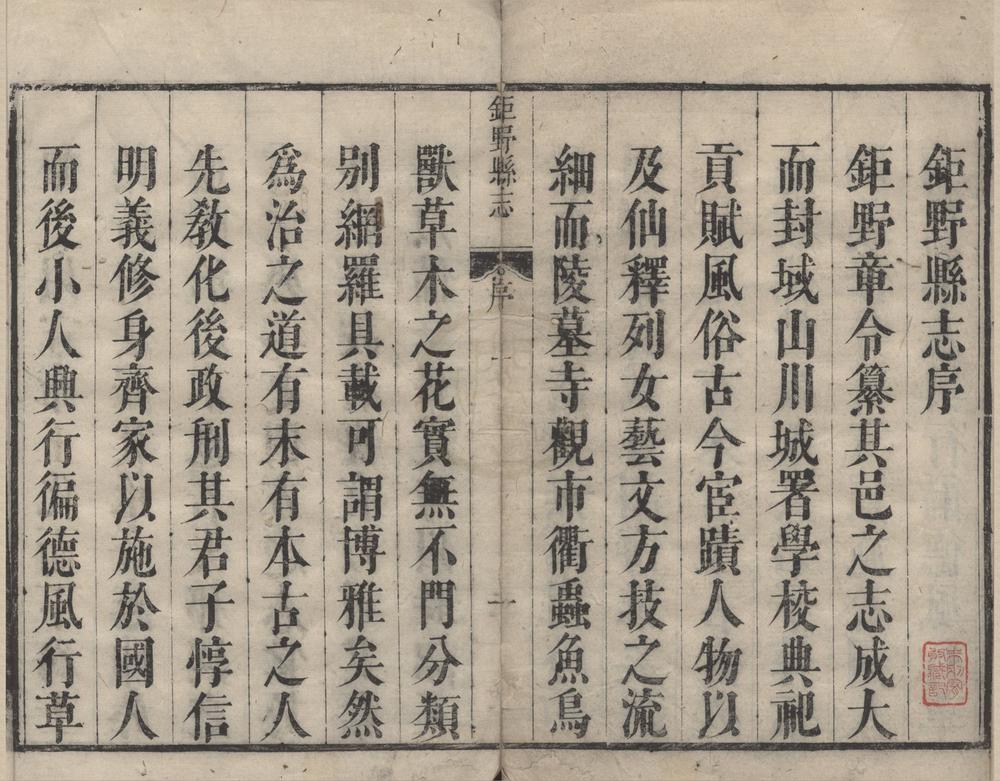 鉅野縣志序
鉅野章令纂其邑之志成大
而封域山川城署學校典祀
貢賦風俗古今宦蹟人物以
及仙釋列女藝文方技之流
細而陵墓寺觀市衢蟲魚鳥
鉅野縣志
序
一
獸草木之花實無不門分類
别網羅具載可謂博雅矣然
爲治之道有末有本古之人
先教化後政刑其君子惇信
明義修身齊家以施於國人
而後小人興行徧德風行草